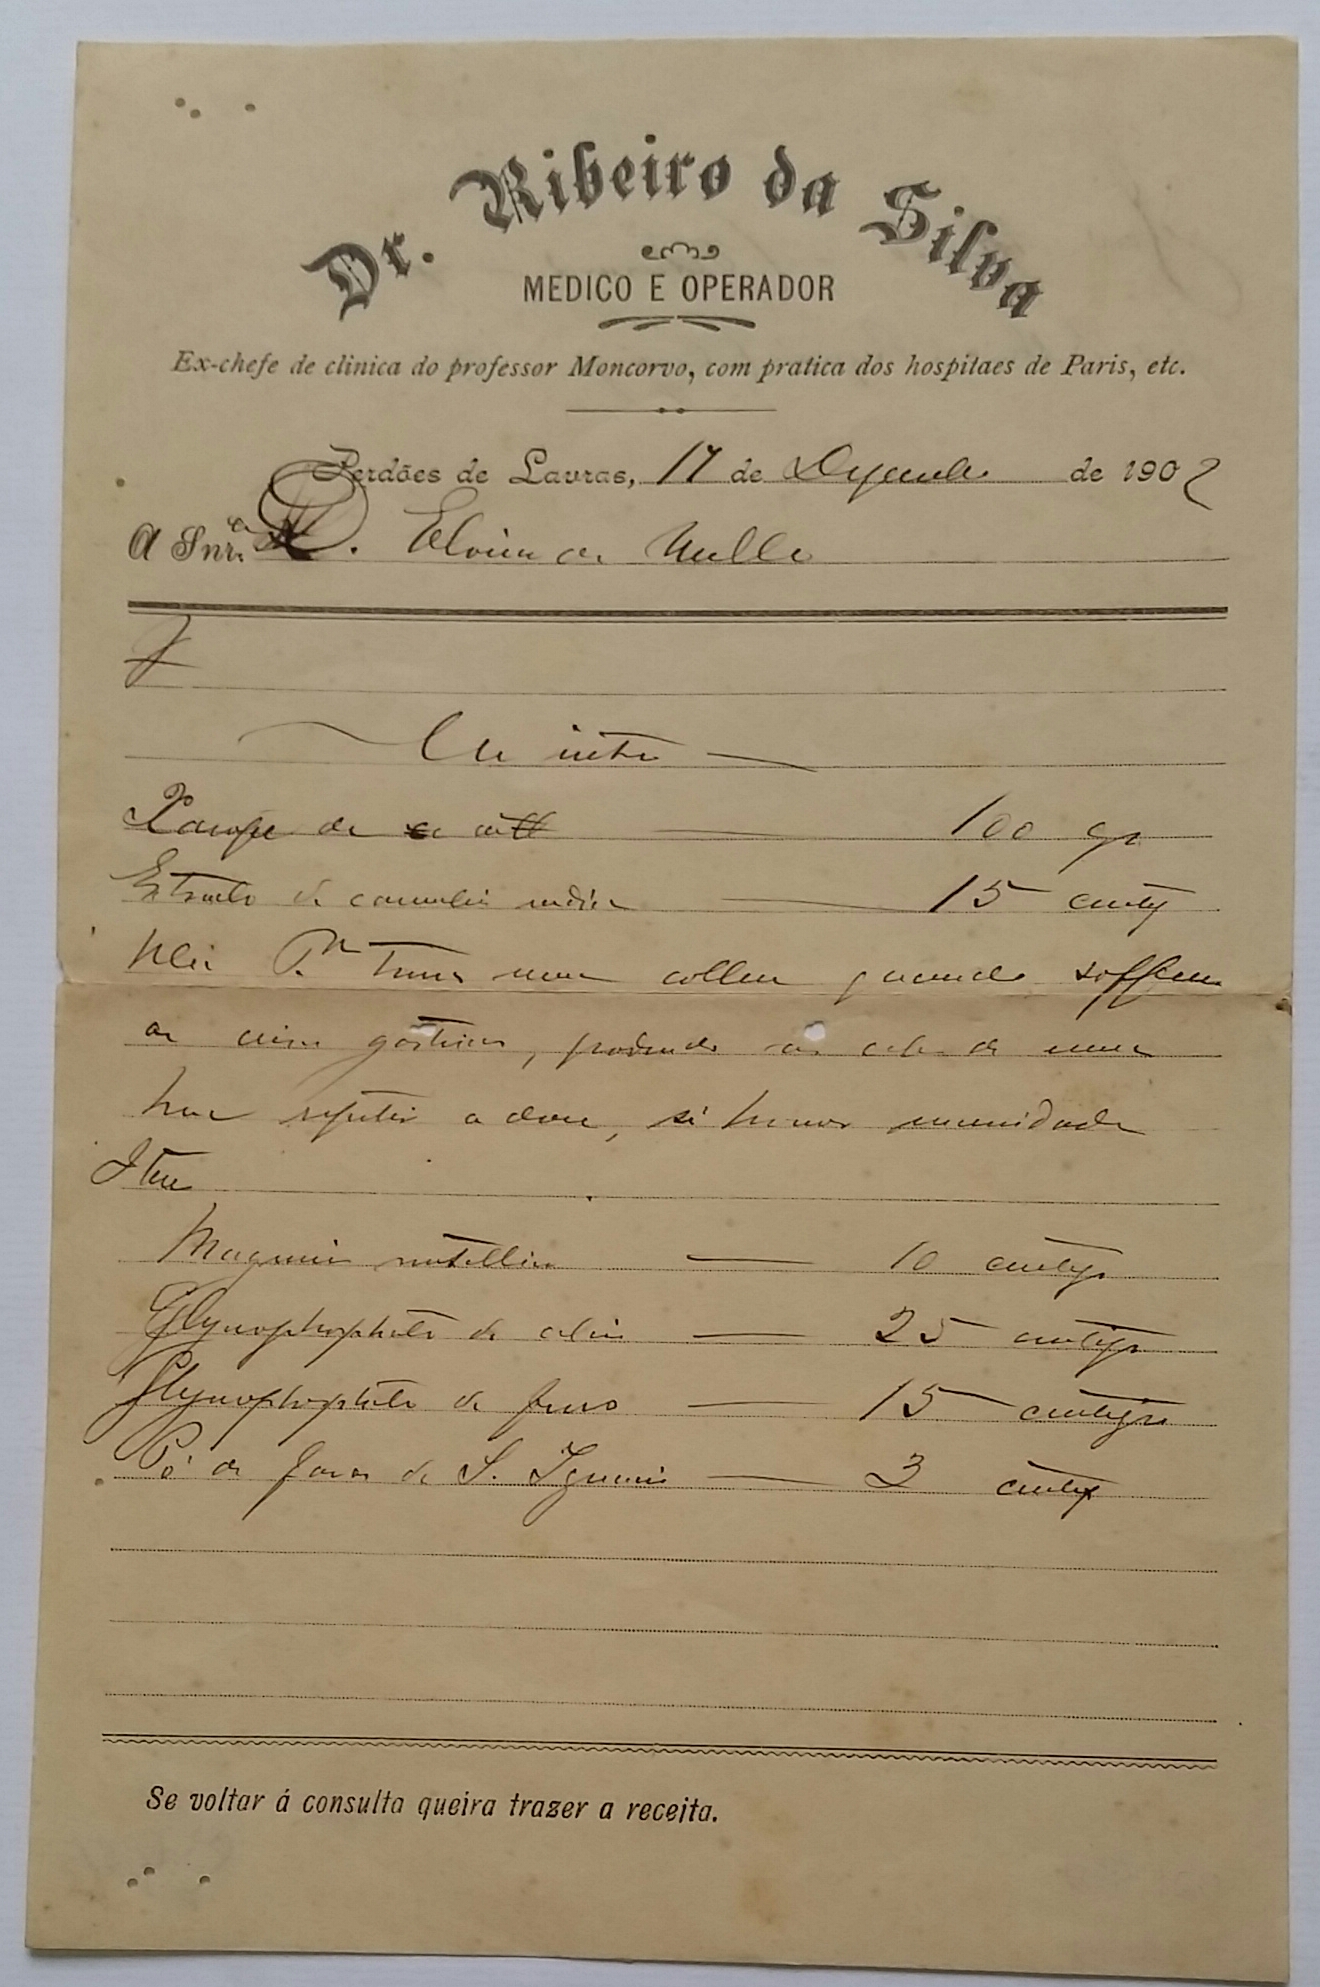 Dr. Ribeiro da Silva
MEDICO E OPERADOR
Ex-chefe de clinica do professor Moncorvo, com pratica dos hospitaes de Paris, etc.
Perdões de Lavras, 17 de Dezembro de 1902
A Snr.a D. Elvira de Mello
Uso int.
Xarope de 100 gr
Extracto de cannabis indica 15 centig
Md.e P.a Tomar uma colher quando soffrer
as crises gastricas, podendo no cabo de uma
hora repetir a dose, si houver necessidade
Item
Magnesia 10 centigr
Glycerophosphato de calcio 25 centigr
Glycerophosphato de ferro 15 centigrs
Pó de favas de S. Ignacio 3 centig
Se voltar á consulta queira trazer a receita.